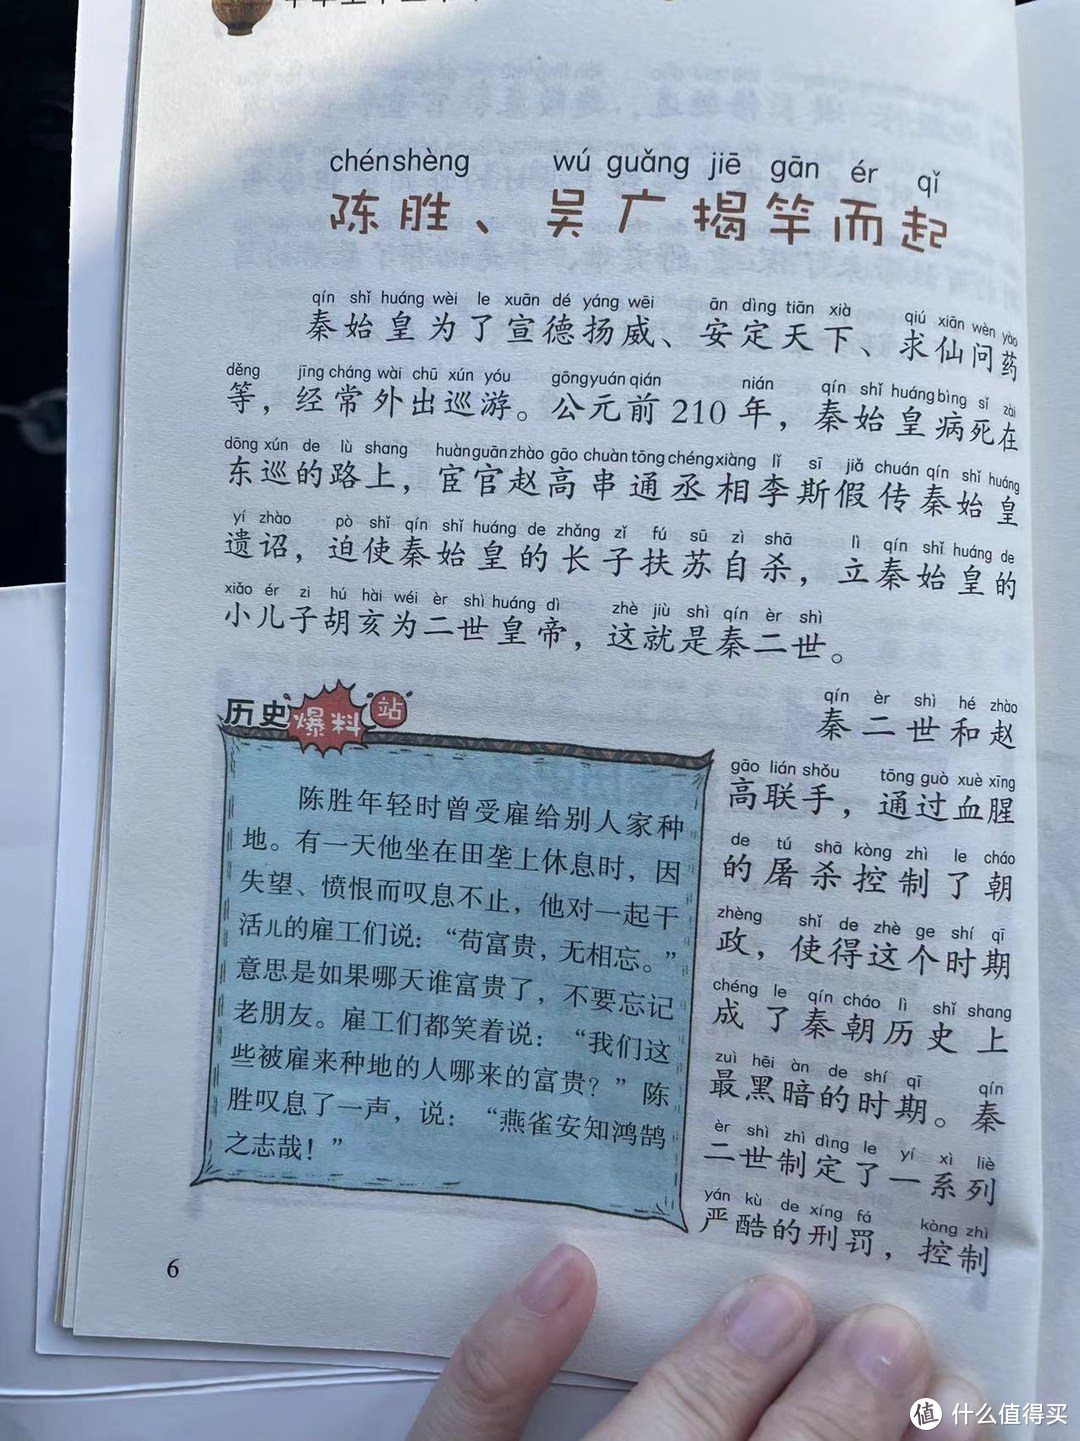 chénshèng wú guǎng jiē gān ér qǐ
陈胜、吴广揭竿而起
qín shǐ huáng wèi le xuān dé yáng wēi ān dìng tiān xià qiú xiān wèn yào
秦始皇为了宣德扬威、安定天下、求仙问药
děng jīng cháng wài chū xún yóu gōngyuán qián nián qín shǐ huáng bìng sǐ zài
等，经常外出巡游。公元前210年，秦始皇病死在
dōng xún de lù shang huànguānzhào gāo chuàn tōng chéngxiàng lǐ sī jiǎ chuán qín shǐ huáng
东巡的路上，宦官赵高串通丞相李斯假传秦始皇
yí zhào pò shǐ qín shǐ huáng de zhǎng zǐ fú sū zì shā lì qín shǐ huáng de
遗诏，迫使秦始皇的长子扶苏自杀，立秦始皇的
xiǎo ér zi hú hài wéi èr shì huáng dì zhè jiù shì qín èr shì
小儿子胡亥为二世皇帝，这就是秦二世。
历史爆料站
陈胜年轻时曾受雇给别人家种
地。有一天他坐在田垄上休息时，因
失望、愤恨而叹息不止，他对一起干
活儿的雇工们说：“苟富贵，无相忘。”
意思是如果哪天谁富贵了，不要忘记
老朋友。雇工们都笑着说：“我们这
些被雇来种地的人哪来的富贵？”陈
胜叹息了一声，说：“燕雀安知鸿鹄
之志哉！”
qín èr shì hé zhào
秦二世和赵
gāo lián shǒu tōng guò xuè xīng
高联手，通过血腥
de tú shā kòng zhì le cháo
的屠杀控制了朝
zhèng shǐ de zhè ge shí qī
政，使得这个时期
chéng le qín cháo lì shǐ shang
成了秦朝历史上
zuì hēi àn de shí qī qín
最黑暗的时期。秦
èr shì zhì dìng le yí xì liè
二世制定了一系列
yán kù de xíng fá kòng zhì
严酷的刑罚，控制
6
值 什么值得买